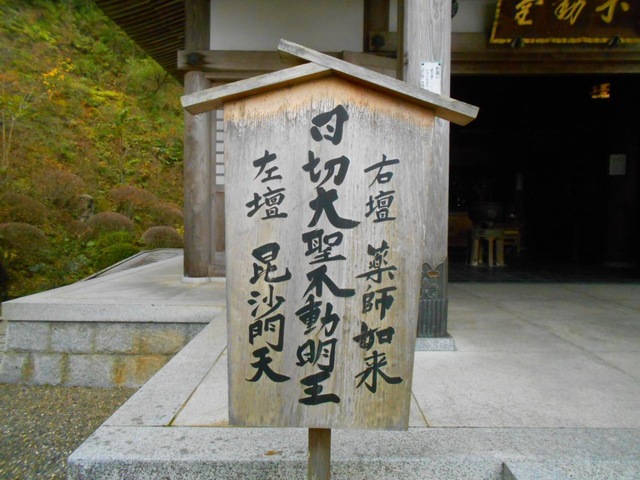 不動堂
右壇 薬師如来
日切大聖不動明王
左壇 昆沙門天